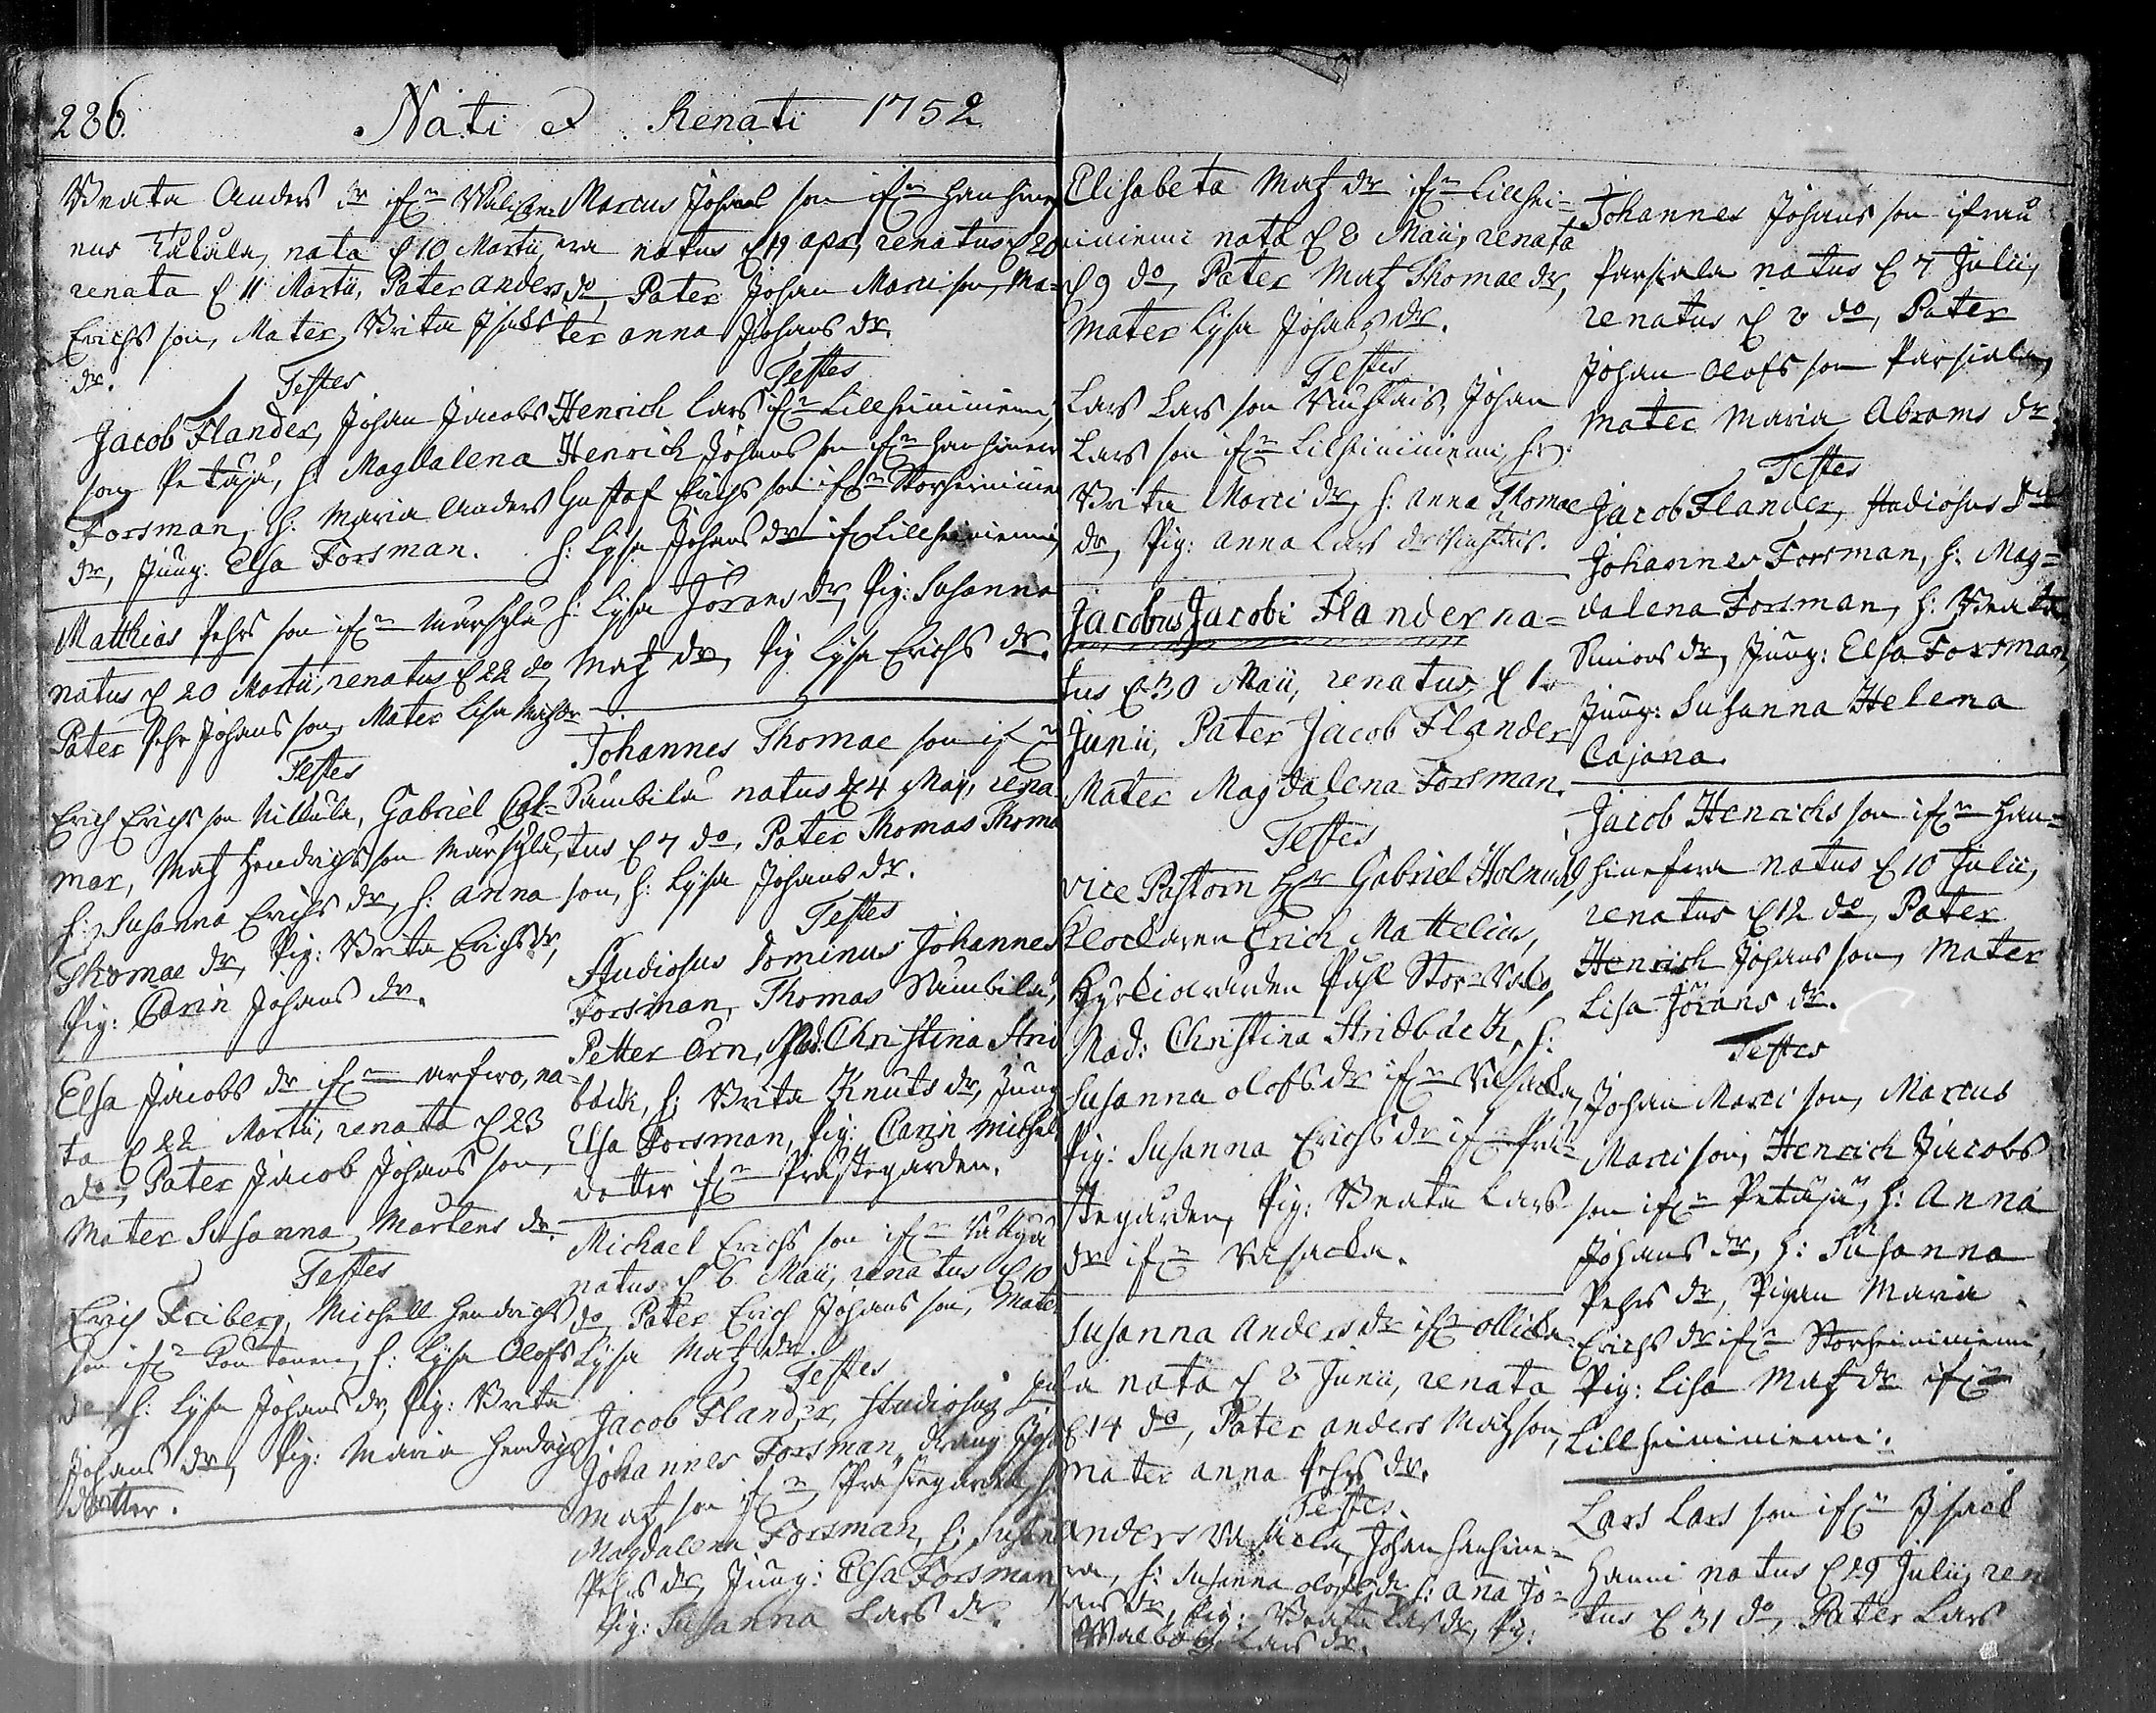 286.
Nati et Renati 1752
Beata Anders dr ifrn
nus Kakula, nata d 10 Martii,
renata d 11 Martii, Pater Anders
Erichs son, Mater Brita Isaks
dr.
Testes
Jacob Flander, Johan Jacobs
son Petäjä, h: Magdalena
Forsman, h: Maria Anders
dr, Jung: Elsa Forsman.
Matthias Pehrs son ifrn
natus d 20 Martii, renatus d 22 do
Pater Pehr Johans son, Mater Lisa
Testes
Erich Erichs son Nikkula, Gabriel Cal=
mar, Matz Hendrichs son
h: Susanna Erichs dr, h: Anna
Thomae dr, Pig: Brita Erichs dr,
Pig: Carin Johans dr.
Elsa Jacobs dr ifrn, na=
ta d 22 Martii, renata d 23
do, Pater Jacob Johans son,
Mater Susanna Mårtens dr.
Testes
Erich Friberg, Michell Hendrichs
son ifrn, h: Lysa Olofs
dr, h: Lysa Johans dr, Pig: Brita
Johans dr, Pig: Maria Hendrichs
dotter.
Marcus Johans son ifrn Hanhine
wa natus d 19 apr, renatus d 20
do, Pater Johan Marci son, Ma=
ter Anna Johans dr.
Testes
Henrich Lars ifrn Lillheiniemi,
Henrich Johans son ifrn
Gustaf Erichs son ifrn
h: Lysa Johans dr if Lillheiniemi,
h: Lysa Jörans dr, Pig: Susanna
Matz dr, Pig Lysa Erichs dr.
Johannes Thomae son ifrn
Rambila natus d 4 Maij, rena
tus d 7 do, Pater Thomas Thomae
son, h: Lysa Johans dr.
Testes
Studiosus Dominus Johannes
Forsman, Thomas Rambila,
Petter Örn, Mad: Christina Strid
bäck, h: Brita Knuts dr, Jung
Elsa Forsman, Pig: Carin Michels
dotter ifrn Prästegården.
Michael Erichs son ifrn
natus d 6 Maii, renatus d 10
do, Pater Erich Johans son, Mater
Lysa Matz dr.
Testes
Jacob Flander, Studiosus
Johannes Forsman, dräng Joh
Matz son ifrn Prästegården, h:
Magdalena Forsman, h: Susanna
Pehrs dr, Jung: Elsa Forsman
Pig: Susanna Lars dr.
Elisabeta Matz dr ifrn Lillhei=
niemi nata d 8 Maii, renata
d 9 do, Pater Matz Thomae dr,
Mater Lysa Johans dr.
Testes
Lars Lars son, Johan
Lars son ifrn Lilheiniemi, h:
Brita Marci dr, h: Anna Thomae
dr, Pig: Anna Lars dr
Jacobus Jacobi Flander na=
tus d 30 Maii, renatus d 1
Junii, Pater Jacob Flander
Mater Magdalena Forsman.
Testes
Vice Pastorn Hr Gabriel Holmud,
Klockaren Erich Mattelius,
Kyrkiowärden
Mad: Christina Stridbäck, h:
Susanna Olofs dr ifrn Wasacka,
Pig: Susanna Erichs dr ifrn Prä=
stegården, Pig: Beata Lars
dr ifrn Wasacka.
Susanna Anders dr ifrn Ollicka=
la nata d 8 Junii, renata
d 14 do, Pater Anders Matz son,
Mater Anna Pehrs dr.
Testes.
Anders Wasacka, Johan Hanhine=
wa, h: Susanna Olofs dr h: Ana Jö=
rans dr, Pig: Beata Lars dr, Pig:
Walborg Lars dr.
Johannes Johans son ifrån
Parsiala natus d 7 Julii,
renatus d 8 do, Pater
Johan Olofs son Parsiala,
Mater Maria Abrams dr.
Testes
Jacob Flander, Studiosus Dn
Johannes Forsman, h: Mag=
dalena Forsman, h: Beata
Simons dr, Jung: Elsa Forsman,
Jung: Susanna Helena
Cajana.
Jacob Henrichs son ifrn Han=
hinefwa natus d 10 Julii,
renatus d 12 do, Pater
Henrich Johans son, Mater
Lisa Jörans dr.
Testes
Johan Marci son, Marcus
Marci son, Henrich Jacobs
son ifrn Petäjä, h: Anna
Johans dr, h: Susanna
Pehrs dr, Pigan Maria
Erichs dr ifrn Storheiniemi,
Pig: Lisa Matz dr ifrn
Lillheiniemi.
Lars Lars son ifrn Isack
Hanni natus d 29 Julii, ren
tus d 31 do, Pater Lars